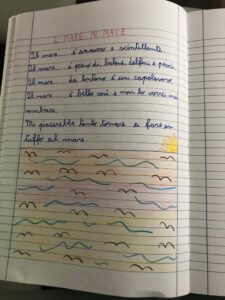 IL MARE MI PIACE
Il mare.... è azzurro e scintillante.
Il mare.... è pieno di balene, delfini e pesci.
Il mare.... da lontano è un capolavoro.
Il mare.... è bello così e non lo vorrei mai
cambiare.
Mi piacerebbe tanto tornare a fare un
tuffo al mare.